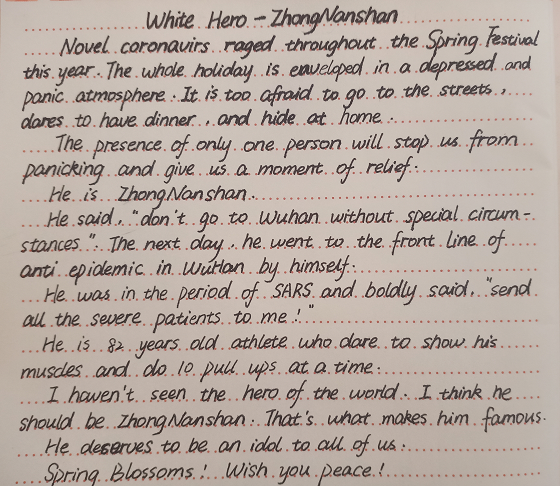 White Hero - ZhongNanshan
Novel coronavirs raged throughout the Spring Festival
this year. The whole holiday is enveloped in a depressed and
panic atmosphere. It is too afraid to go to the streets,
dares to have dinner, and hide at home.
The presence of only one person will stop us from
panicking and give us a moment of relief.
He is ZhongNanshan.
He said, "don't go to Wuhan without special circum-
stances". The next day, he went to the front line of
anti epidemic in WuHan by himself.
He was in the period of SARS and boldly said, "send
all the severe patients to me!"
He is 82 years old athlete who dare to show his
muscles and do 10 pull ups at a time.
I haven't seen the hero of the world. I think he
should be ZhongNanshan. That's what makes him famous.
He deserves to be an idol to all of us.
Spring Blossoms! Wish you peace!